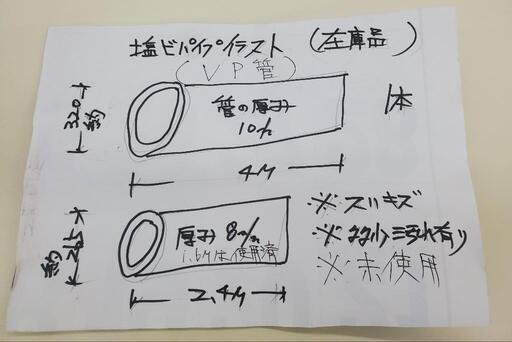 塩ビパイプイラスト (在庫品)
(VP管)
管の厚み
10m/m
1本
約320
4M
厚み 8m/m
1.6M使用済
約265
2.4M
※スリキズ
※多少汚れ有り
※未使用